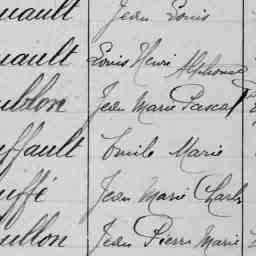 uault Jean Louis
uault Louis Henri Alphonse
ublon Jean Marie Pascal
uffault Emile Marie
uffé Jean Marie Charles
ullon Jean Pierre Marie